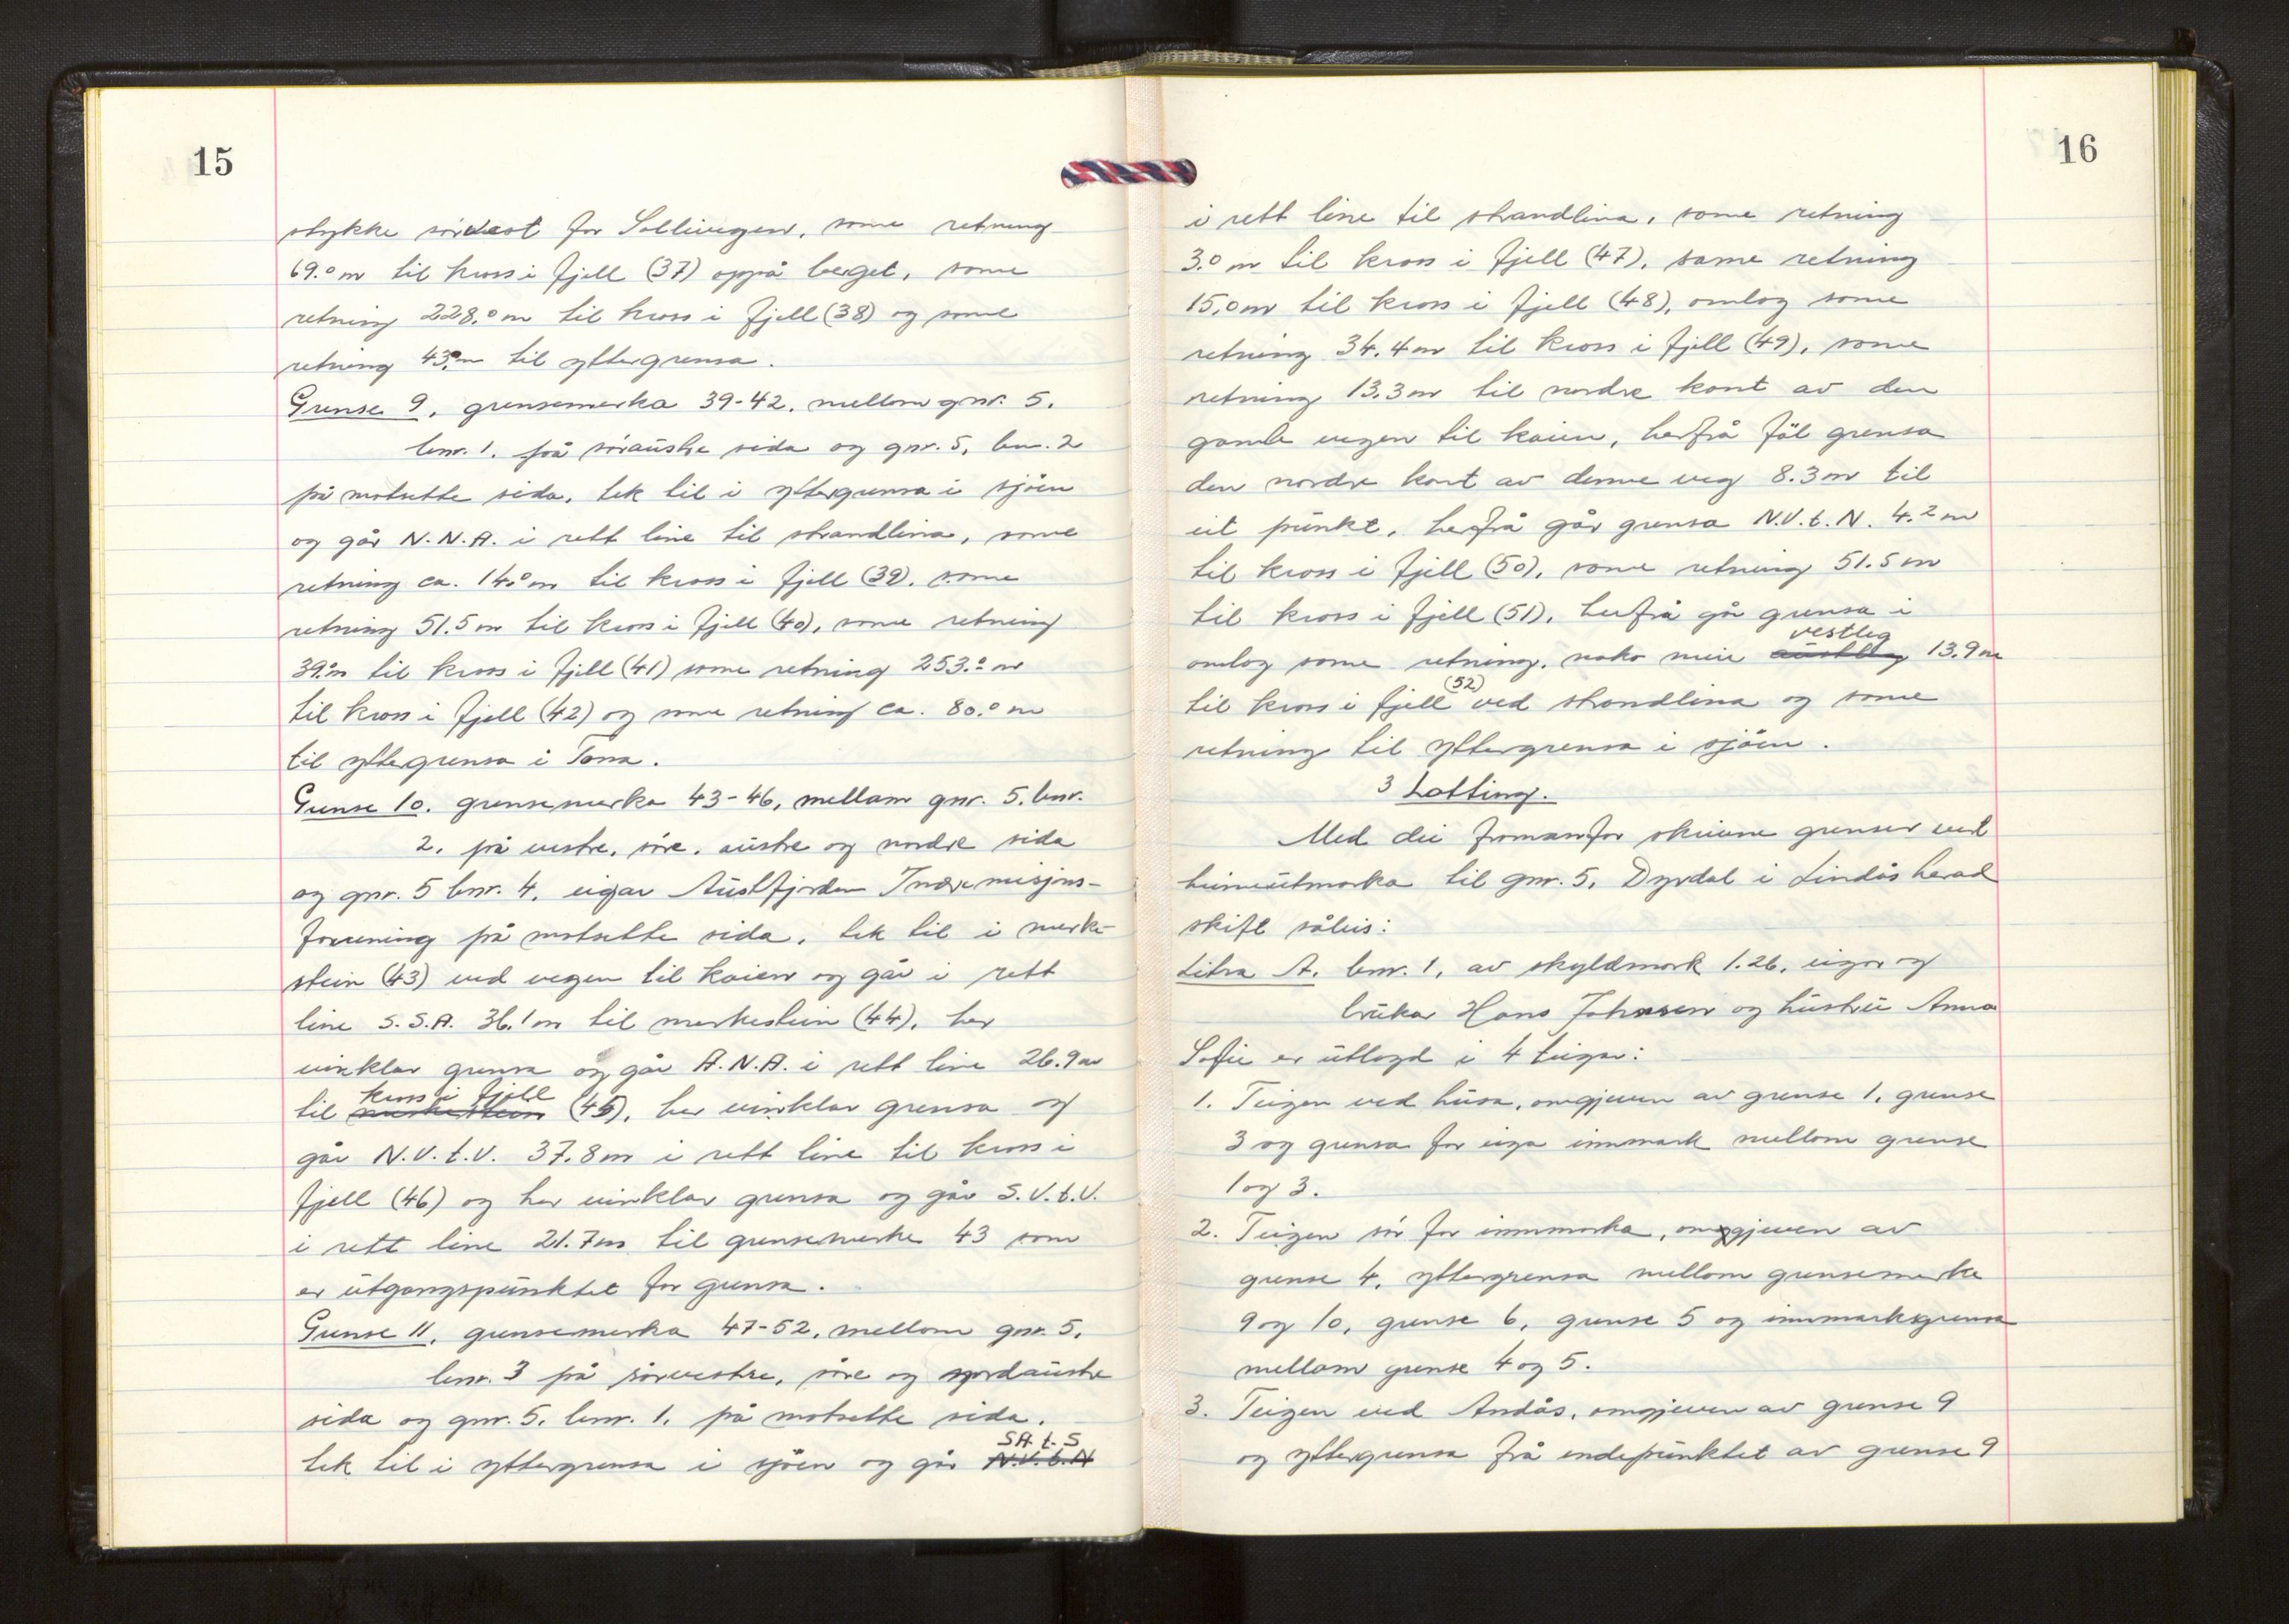 15
stykke sóraust for Sollivegen, same retning
69.0 m til kross i fjell (37) oppå berget, same
retning 228.0 m til kross i fjell (38) og same
retning 43.0 m til yttergrensa.
Grense 9, grensemerka 39-42, mellom gnr. 5.
bnr. 1. på sóraustre sida og gnr. 5, bnr. 2
på motsette sida, tek til i yttergrensa i sjöen
og går N.N.A. i rett line til strandlina, same
retning ca. 14.0 m til kross i fjell (39), same
retning 51.5 m til kross i fjell (40), same retning
39.0 m til kross i fjell (41) same retning 253.0 m
til kross i fjell (42) og same retning ca. 80.0 m
til yttergrensa i Tona.
Grense 10. grensemerka 43-46, mellom gnr. 5. bnr.
2. på vestre, sóre, austre og nordre sida
og gnr. 5 bnr. 4, eigar Austfjorden Indremisjons-
forening på motsette sida, tek til i merke-
stein (43) ved vegen til kaien og går i rett
line S.S.A. 36.1 m til merkestein (44), her
vinklar grensa og går A.N.A. i rett line 26.9 m
kross i fjell
til merkestein (45), her vinklar grensa og
går N.V.t.V. 37.8 m i rett line til kross i
fjell (46) og her vinklar grensa og går S.V.t.V.
i rett line 21.7 m til grensemerke 43 som
er utgangspunktet for grensa.
Grense 11, grensemerka 47-52, mellom gnr. 5.
bnr. 3 på sórvestre, sóre og nordaustre
sida og gnr. 5. bnr. 1. på motsette sida.
SA.t.S
tek til i yttergrensa i sjöen og går N.V.t.N
16
i rett line til strandlina, same retning
3.0 m til kross i fjell (47), same retning
15.0 m til kross i fjell (48), omlag same
retning 34.4 m til kross i fjell (49), same
retning 13.3 m til nordre kant av den
gamle vegen til kaien, herfrå fól grensa
den nordre kant av denne veg 8.3 m til
eit punkt, herfrå går grensa N.V.t.N. 4.2 m
til kross i fjell (50), same retning 51.5 m
til kross i fjell (51), herfrå går grensa i
vestleg
omlag same retning, noko meir austleg 13.9 m
(52)
til kross i fjell ved strandlina og same
retning til yttergrensa i sjöen.
3 Lotting.
Med dei framanfor skrivne grenser vert
heimeutmarka til gnr. 5, Dyrdal i Lindås herad
skift såleis:
Litra A. bnr. 1, av skyldmark 1.26, eigar og
brukar Hans Johnsen og hustru Anna
Sofie er utlagd i 4 teigar:
1. Teigen ved húsa, omgjeven av grense 1, grense
3 og grensa for eiga innmark mellom grense
1 og 3.
2. Teigen sór for innmarka, omgjeven av
grense 4, yttergrensa mellom grensemerke
9 og 10, grense 6, grense 5 og innmarksgrensa
mellom grense 4 og 5.
3. Teigen ved Andås, omgjeven av grense 9
og yttergrensa frå endepunktet av grense 9